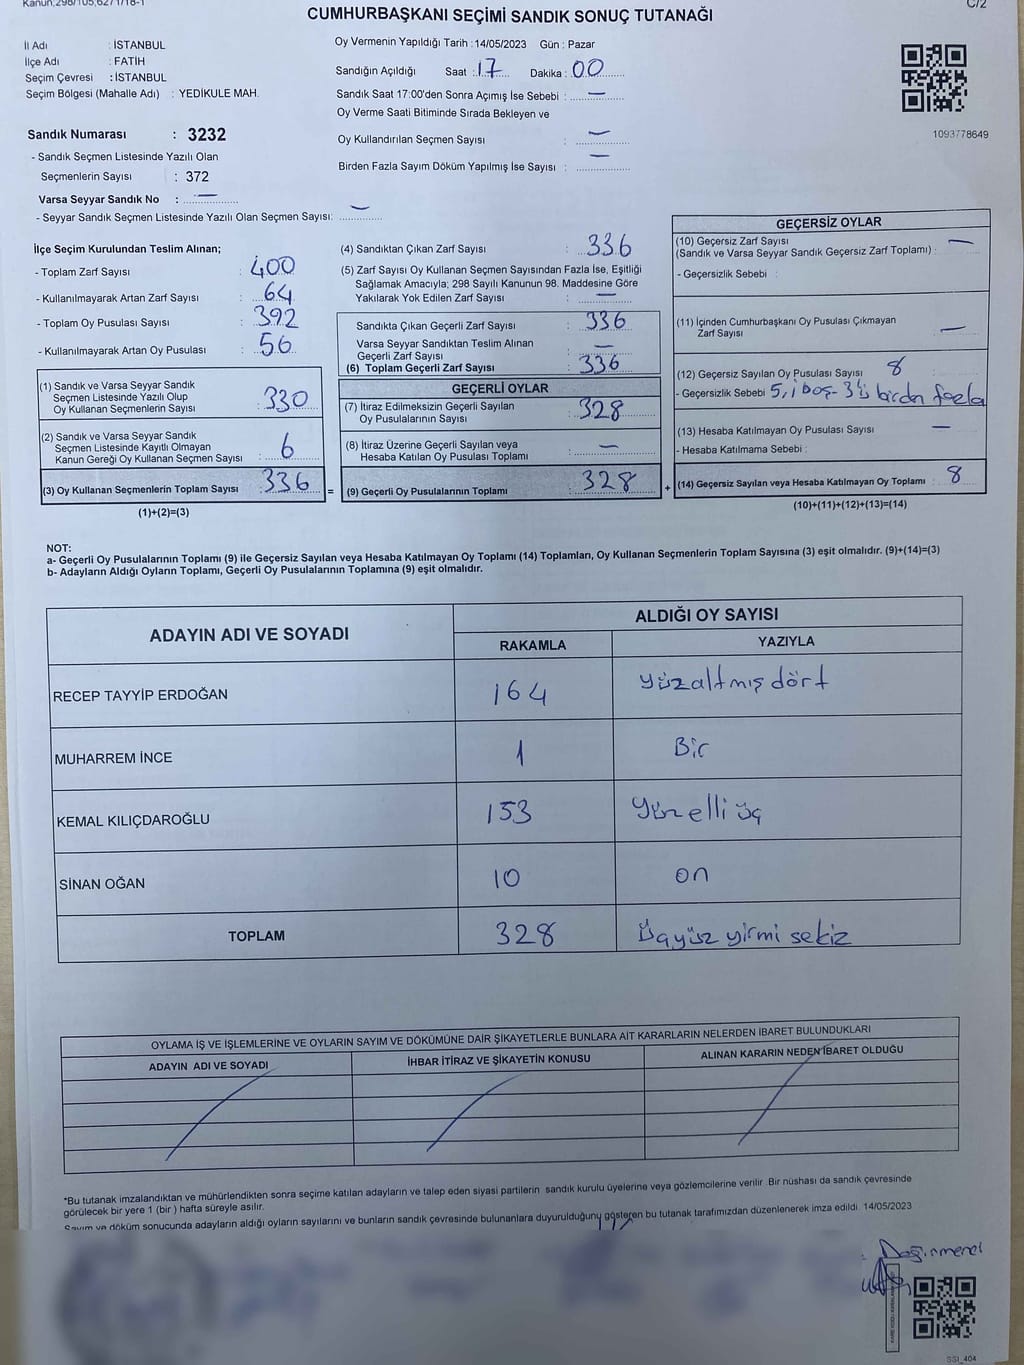 Kanun,298/105,6271/18-1
C/2
CUMHURBAŞKANI SEÇİMİ SANDIK SONUÇ TUTANAĞI
İl Adı : İSTANBUL
İlçe Adı : FATİH
Seçim Çevresi : İSTANBUL
Seçim Bölgesi (Mahalle Adı) : YEDİKULE MAH.
Oy Vermenin Yapıldığı Tarih : 14/05/2023 Gün : Pazar
Sandığın Açıldığı Saat : 17 Dakika : 00
Sandık Saat 17:00'den Sonra Açımış İse Sebebi : —
Oy Verme Saati Bitiminde Sırada Bekleyen ve
Oy Kullandırılan Seçmen Sayısı : —
Birden Fazla Sayım Döküm Yapılmış İse Sayısı : —
1093778649
Sandık Numarası : 3232
- Sandık Seçmen Listesinde Yazılı Olan
Seçmenlerin Sayısı : 372
Varsa Seyyar Sandık No : —
- Seyyar Sandık Seçmen Listesinde Yazılı Olan Seçmen Sayısı: —
İlçe Seçim Kurulundan Teslim Alınan;
- Toplam Zarf Sayısı : 400
- Kullanılmayarak Artan Zarf Sayısı : 64
- Toplam Oy Pusulası Sayısı : 392
- Kullanılmayarak Artan Oy Pusulası : 56
(1) Sandık ve Varsa Seyyar Sandık
Seçmen Listesinde Yazılı Olup
Oy Kullanan Seçmenlerin Sayısı : 330
(2) Sandık ve Varsa Seyyar Sandık
Seçmen Listesinde Kayıtlı Olmayan
Kanun Gereği Oy Kullanan Seçmen Sayısı : 6
(3) Oy Kullanan Seçmenlerin Toplam Sayısı : 336 =
(1)+(2)=(3)
(4) Sandıktan Çıkan Zarf Sayısı : 336
(5) Zarf Sayısı Oy Kullanan Seçmen Sayısından Fazla İse, Eşitliği
Sağlamak Amacıyla; 298 Sayılı Kanunun 98. Maddesine Göre
Yakılarak Yok Edilen Zarf Sayısı : —
Sandıkta Çıkan Geçerli Zarf Sayısı : 336
Varsa Seyyar Sandıktan Teslim Alınan
Geçerli Zarf Sayısı : —
(6) Toplam Geçerli Zarf Sayısı : 336
GEÇERLİ OYLAR
(7) İtiraz Edilmeksizin Geçerli Sayılan
Oy Pusulalarının Sayısı : 328
(8) İtiraz Üzerine Geçerli Sayılan veya
Hesaba Katılan Oy Pusulası Toplamı : —
(9) Geçerli Oy Pusulalarının Toplamı : 328 +
GEÇERSİZ OYLAR
(10) Geçersiz Zarf Sayısı —
(Sandık ve Varsa Seyyar Sandık Geçersiz Zarf Toplamı) :
- Geçersizlik Sebebi :
(11) İçinden Cumhurbaşkanı Oy Pusulası Çıkmayan
Zarf Sayısı —
(12) Geçersiz Sayılan Oy Pusulası Sayısı 8
- Geçersizlik Sebebi 5'i boş - 3'ü birden fazla
(13) Hesaba Katılmayan Oy Pusulası Sayısı —
- Hesaba Katılmama Sebebi :
(14) Geçersiz Sayılan veya Hesaba Katılmayan Oy Toplamı : 8
(10)+(11)+(12)+(13)=(14)
NOT:
a- Geçerli Oy Pusulalarının Toplamı (9) ile Geçersiz Sayılan veya Hesaba Katılmayan Oy Toplamı (14) Toplamları, Oy Kullanan Seçmenlerin Toplam Sayısına (3) eşit olmalıdır. (9)+(14)=(3)
b- Adayların Aldığı Oyların Toplamı, Geçerli Oy Pusulalarının Toplamına (9) eşit olmalıdır.
ADAYIN ADI VE SOYADI
ALDIĞI OY SAYISI
RAKAMLA YAZIYLA
RECEP TAYYİP ERDOĞAN 164 yüzaltmış dört
MUHARREM İNCE 1 Bir
KEMAL KILIÇDAROĞLU 153 yüzelli üç
SİNAN OĞAN 10 on
TOPLAM 328 Üçyüz yirmi sekiz
OYLAMA İŞ VE İŞLEMLERİNE VE OYLARIN SAYIM VE DÖKÜMÜNE DAİR ŞİKAYETLERLE BUNLARA AİT KARARLARIN NELERDEN İBARET BULUNDUKLARI
ADAYIN ADI VE SOYADI İHBAR İTİRAZ VE ŞİKAYETİN KONUSU ALINAN KARARIN NEDEN İBARET OLDUĞU
*Bu tutanak imzalandıktan ve mühürlendikten sonra seçime katılan adayların ve talep eden siyasi partilerin sandık kurulu üyelerine veya gözlemcilerine verilir. Bir nüshası da sandık çevresinde
görülecek bir yere 1 (bir ) hafta süreyle asılır.
Sayım ve döküm sonucunda adayların aldığı oyların sayılarını ve bunların sandık çevresinde bulunanlara duyurulduğunu gösteren bu tutanak tarafımızdan düzenlenerek imza edildi. 14/05/2023
SSI_404